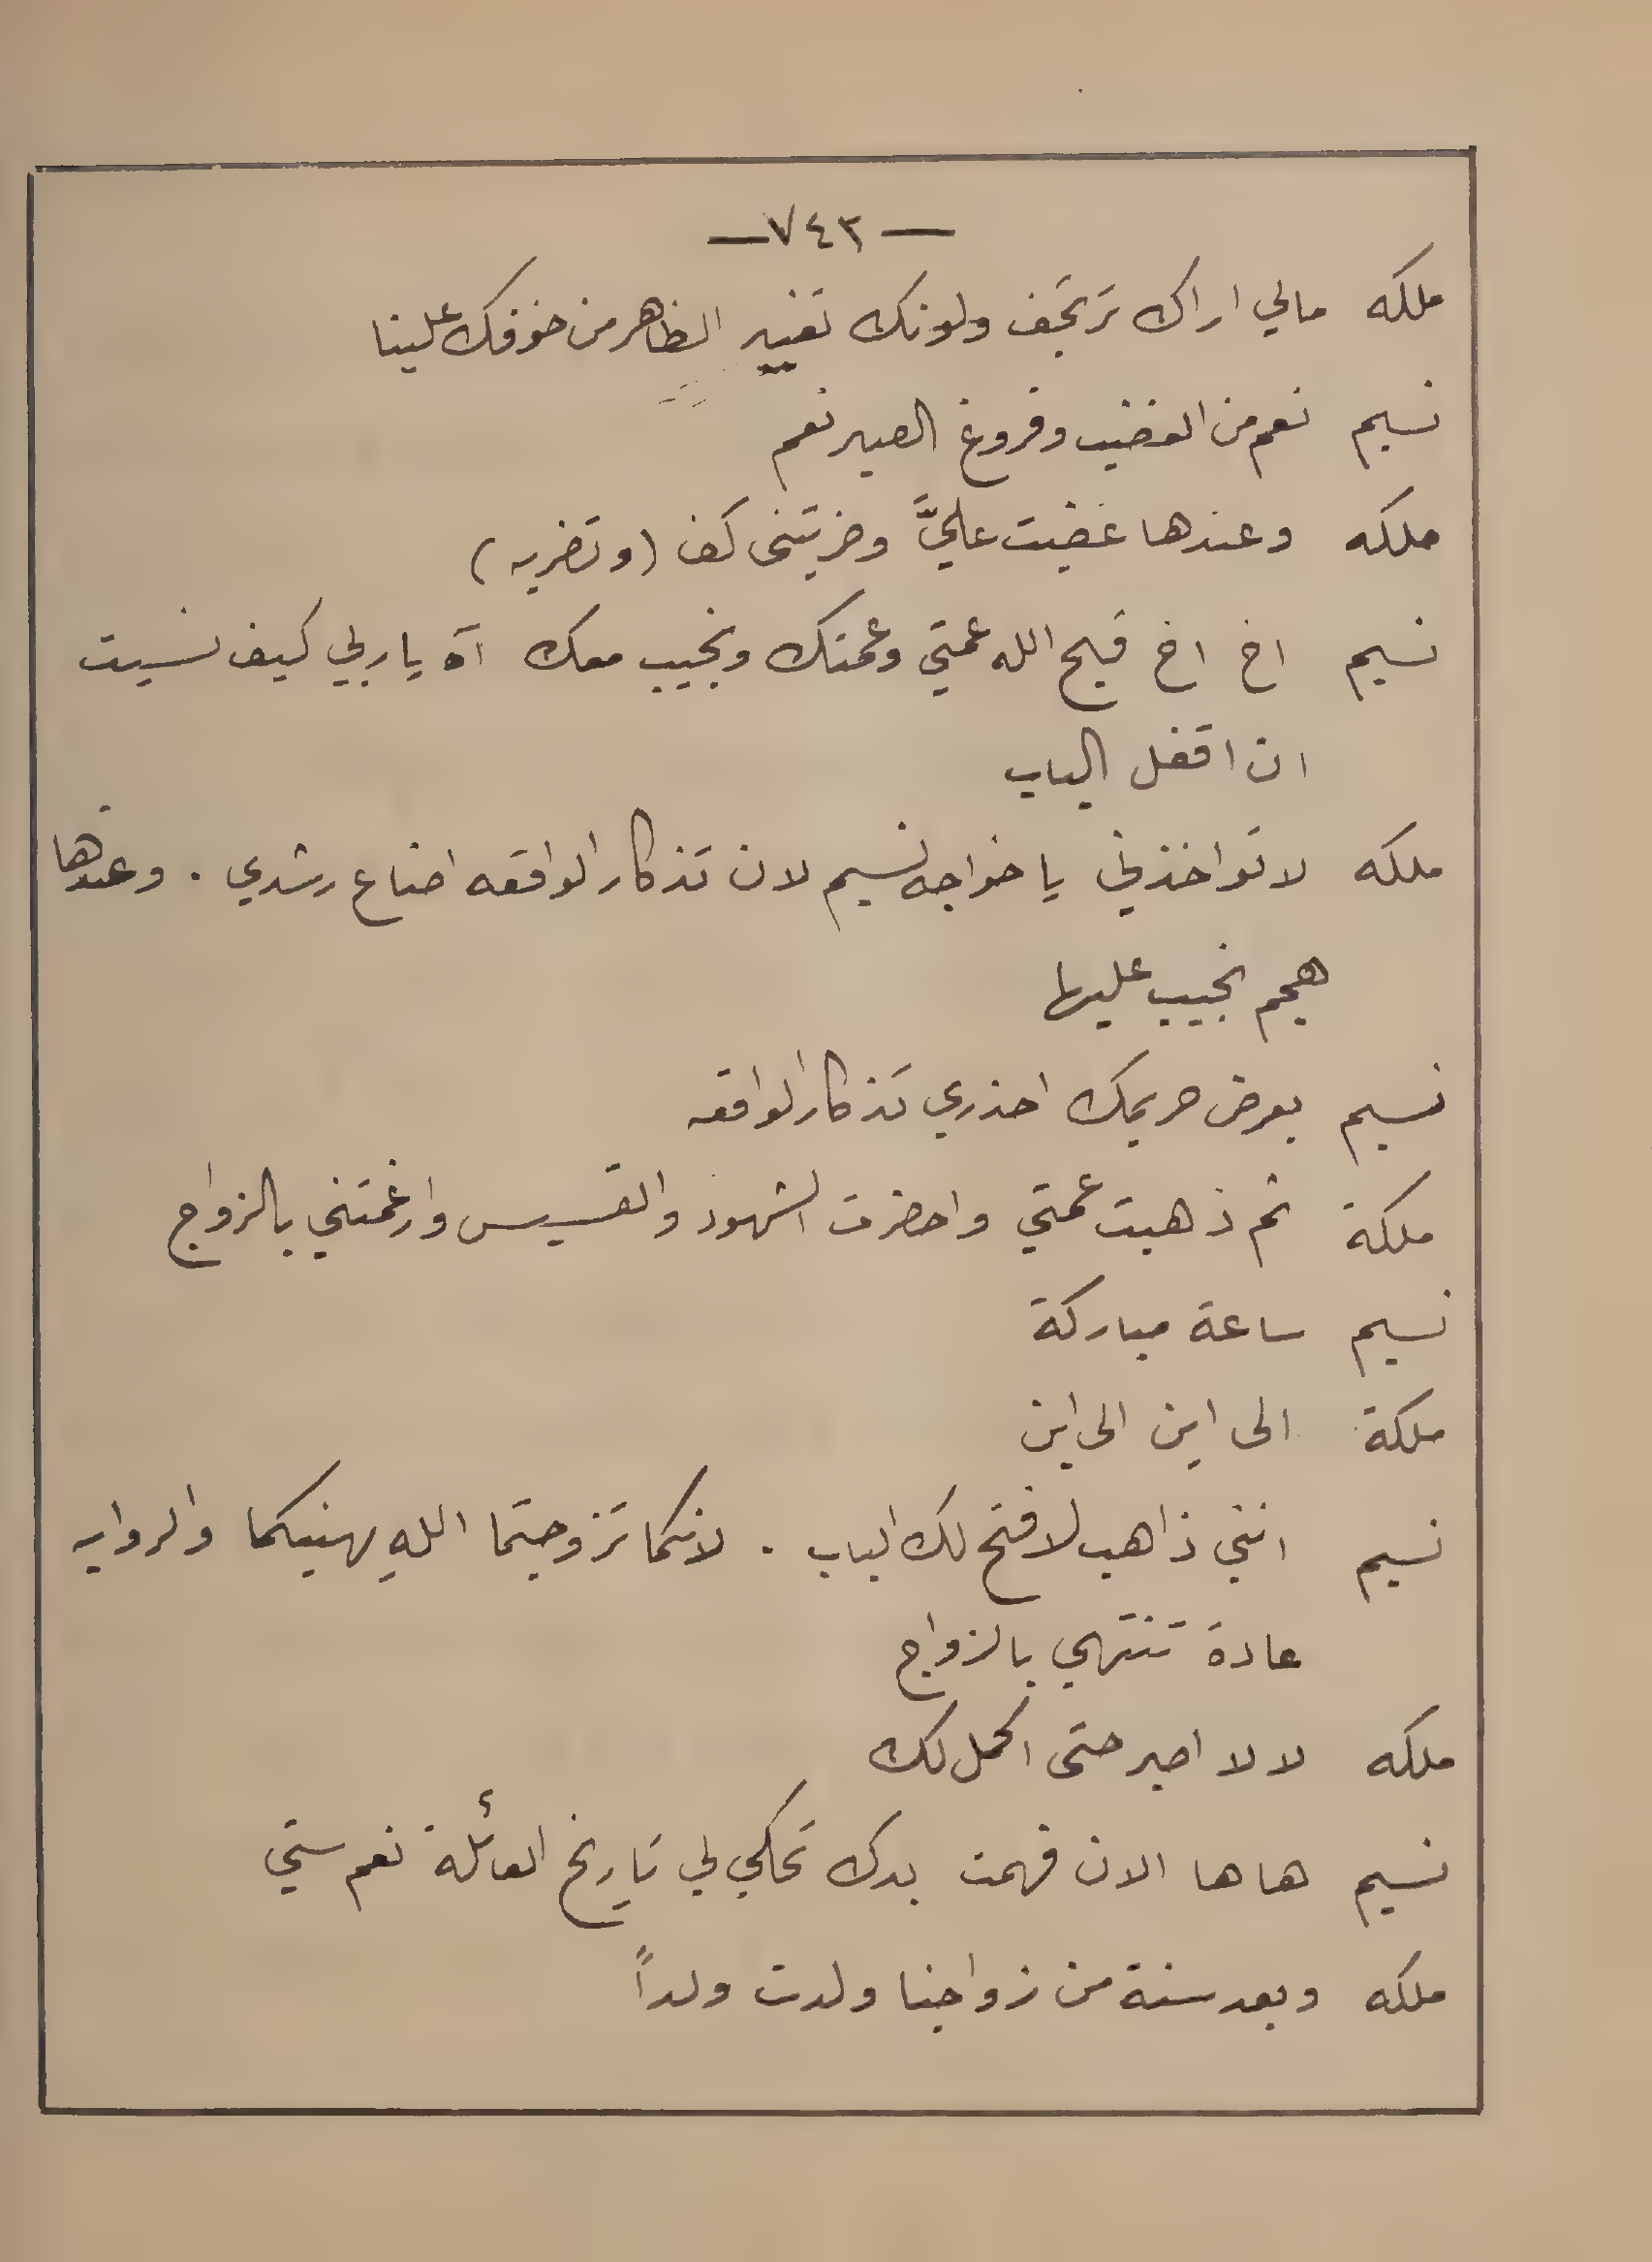 — ٧٤٣ —
ملكه مالي اراك ترتجف ولونك تغير الظاهر من خوفك علينا
نسيم نعم من الغضب وفروغ الصبر نعم
ملكه وعندها غضبت عليَّ وضربتني كف (وتضربه)
نسيم اخ اخ قبح الله عمتي وعمتك ونجيب معك آه يا ربي كيف نسيت
ان اقفل الباب
ملكه لا تواخذني يا خواجه نسيم لان تذكار الواقعه اضاع رشدي . وعندها
هجم نجيب عليها
نسيم بعرض حريمك احذري تذكار الواقعه
ملكة ثم ذهبت عمتي واحضرت الشهود والقسيس وارغمتني بالزواج
نسيم ساعة مباركة
ملكة الى اين الى اين
نسيم انني ذاهب لافتح لك الباب . لانكما تزوجتما اللهِ يهنيكما والروايه
عادة تنتهي بالزواج
ملكه لا لا اصبر حتى اكمل لك
نسيم ها ها الان فهمت بدك تحكي لي تاريخ العائلة نعم ستي
ملكه وبعد سنة من زواجنا ولدت ولداً